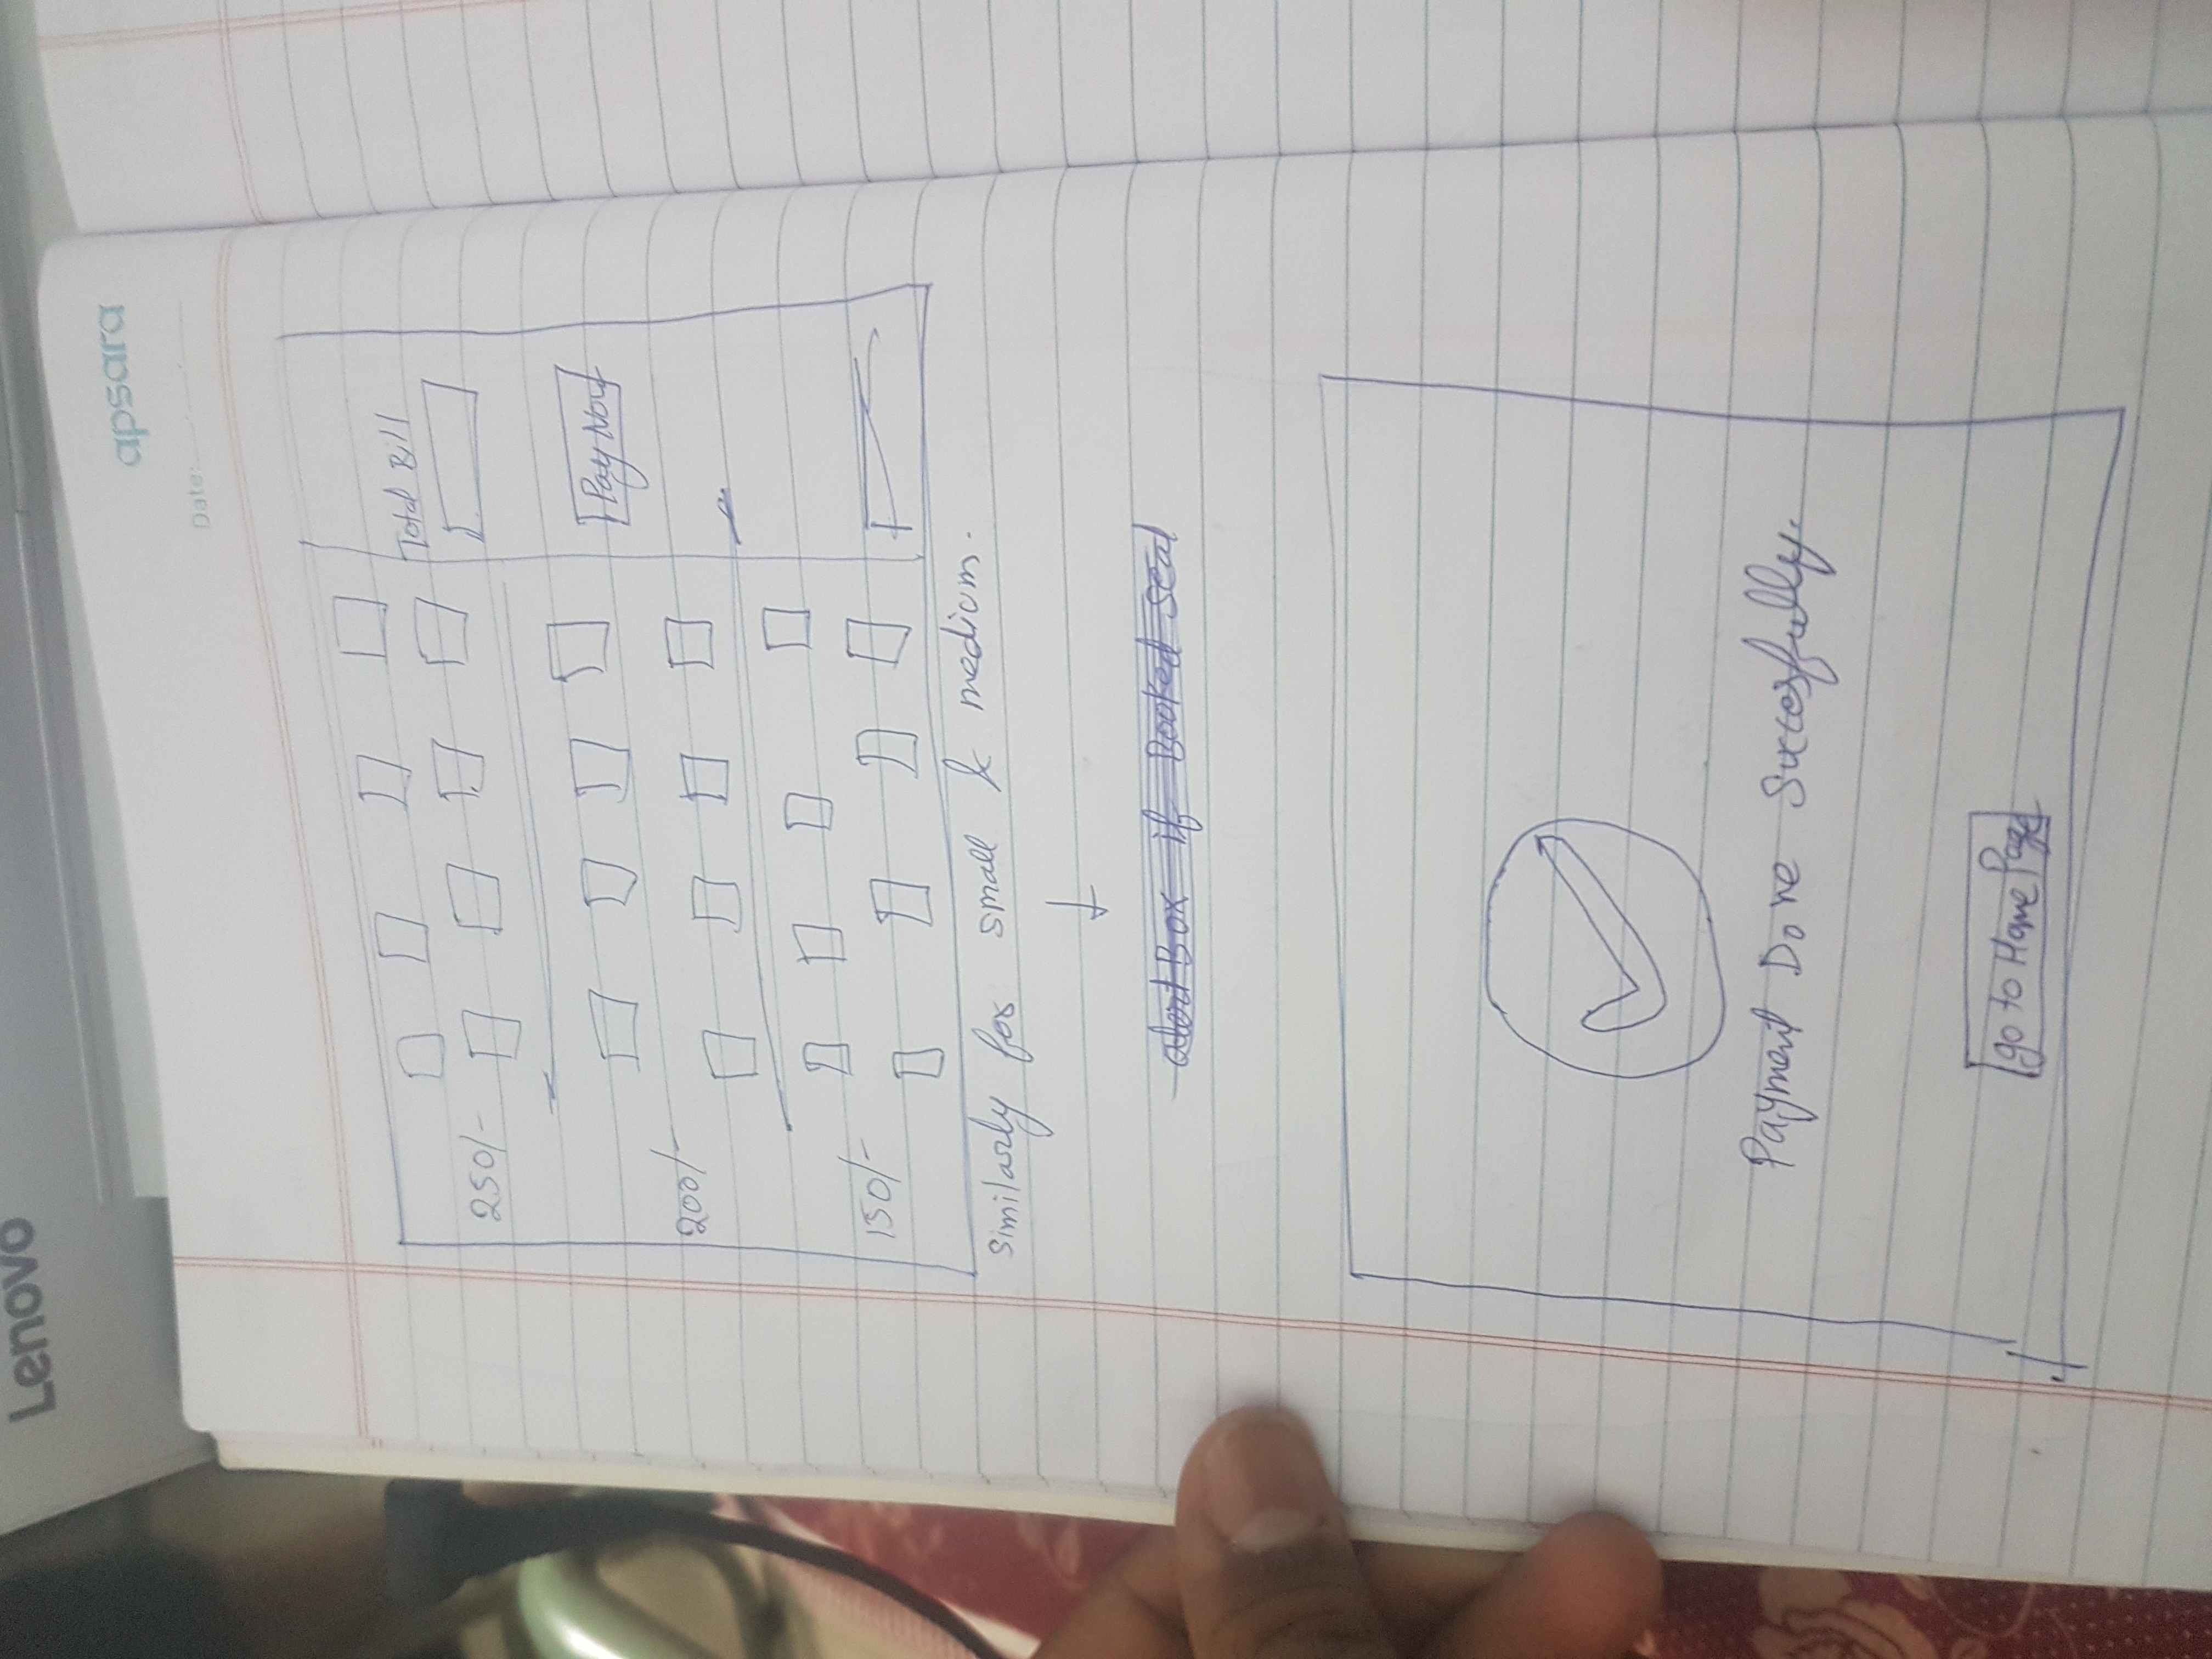 Lenovo
apsara
Date:
Total Bill
250/-
Pay Now
200/-
150/-
Similarly for small & medium.
alert Box if Booked seat
Payment Done Succesfully.
go to Home Page